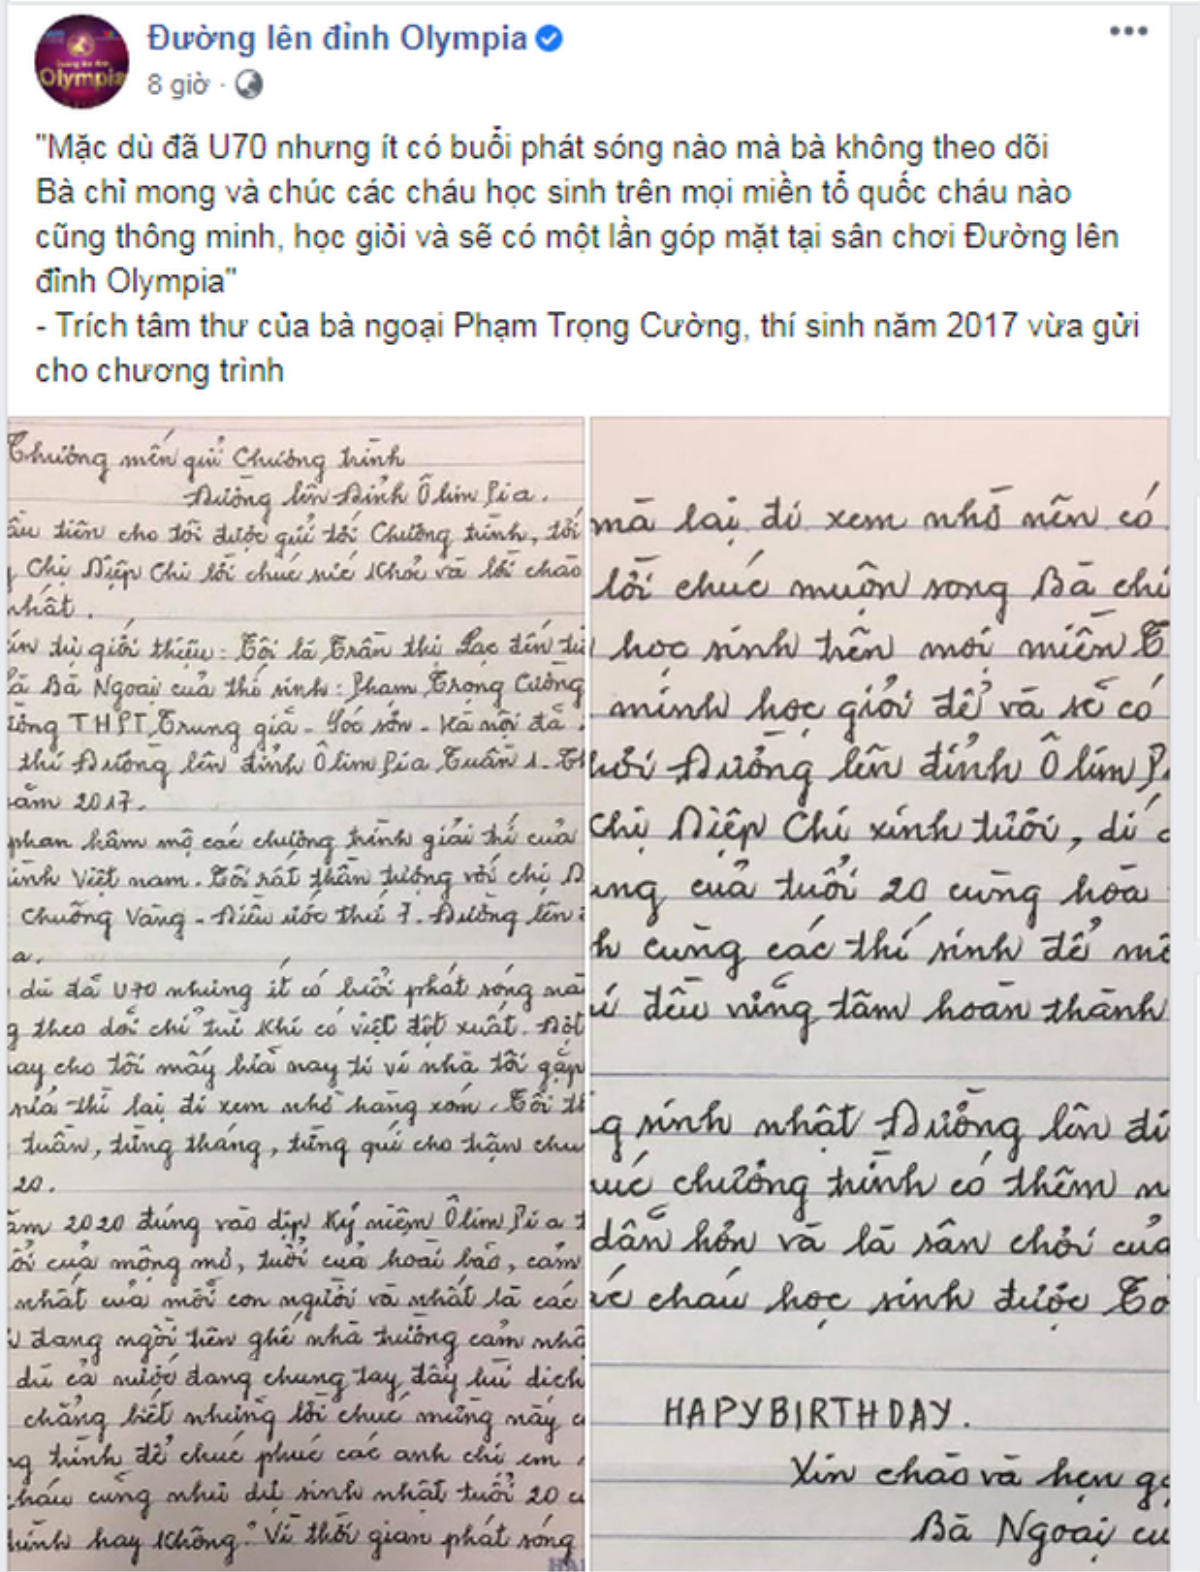 Đường lên đỉnh Olympia
8 giờ
Olympia
"Mặc dù đã U70 nhưng ít có buổi phát sóng nào mà bà không theo dõi
Bà chỉ mong và chúc các cháu học sinh trên mọi miền tổ quốc cháu nào
cũng thông minh, học giỏi và sẽ có một lần góp mặt tại sân chơi Đường lên
đỉnh Olympia"
- Trích tâm thư của bà ngoại Phạm Trọng Cường, thí sinh năm 2017 vừa gửi
cho chương trình
Thương mến gửi Chương trình
Đường lên Đỉnh Ô lim Pi a.
ầu tiên cho tôi được gửi tới Chương trình, tới
Chị Diệp Chi lời chúc sức khỏe và lời chào
nhất.
in tự giới thiệu: Tôi là Trần thị Lạc đến từ
là Bà Ngoại của thí sinh: Phạm Trọng Cường
ường THPT Trung giã - Sóc sơn - Hà nội đã
thi Đường lên đỉnh Ô lim Pia Tuần 1 - Th
ăm 2017.
phan hâm mộ các chương trình giải trí của
ình Việt nam. Tôi rất thần tượng với chị D
Chuông Vàng - Điều ước thứ 7. Đường lên
a.
dù đã U70 nhưng ít có buổi phát sóng nà
g theo dõi chỉ trừ khi có việt đột xuất. Một
ay cho tôi mấy bữa nay ti vi nhà tôi gặp
thì lại đi xem nhờ hàng xóm. Tôi th
tuần, từng tháng, từng quí cho trận chu
20.
ăm 2020 đúng vào dịp kỷ niệm Ôlim Pi a t
ổi của mộng mơ, tuổi của hoài bão, cảm
nhất của mỗi con người và nhất là các
đang ngồi trên ghế nhà trường cảm nhậ
dù cả nước đang chung tay đẩy lùi dịch
chẳng biết những lời chúc mừng này c
g trình để chúc phúc các anh chị em
cháu cũng như dự sinh nhật tuổi 20 c
hình hay không. Vì thời gian phát sóng
mà lại đi xem nhờ nên có
lời chúc muộn song Bà chỉ
học sinh trên mọi miền T
minh học giỏi để và sẽ có
hơi Đường lên đỉnh Ô lim P
Chị Diệp Chi xinh tươi, dí d
ung của tuổi 20 cùng hòa
h cùng các thí sinh để mỗ
í đều vững tâm hoàn thành
g sinh nhật Đường lên đỉ
úc chương trình có thêm n
dẫn hơn và là sân chơi của
ác cháu học sinh được Tô
HAPYBIRTHDAY.
Xin chào và hẹn g
Bà Ngoại cu